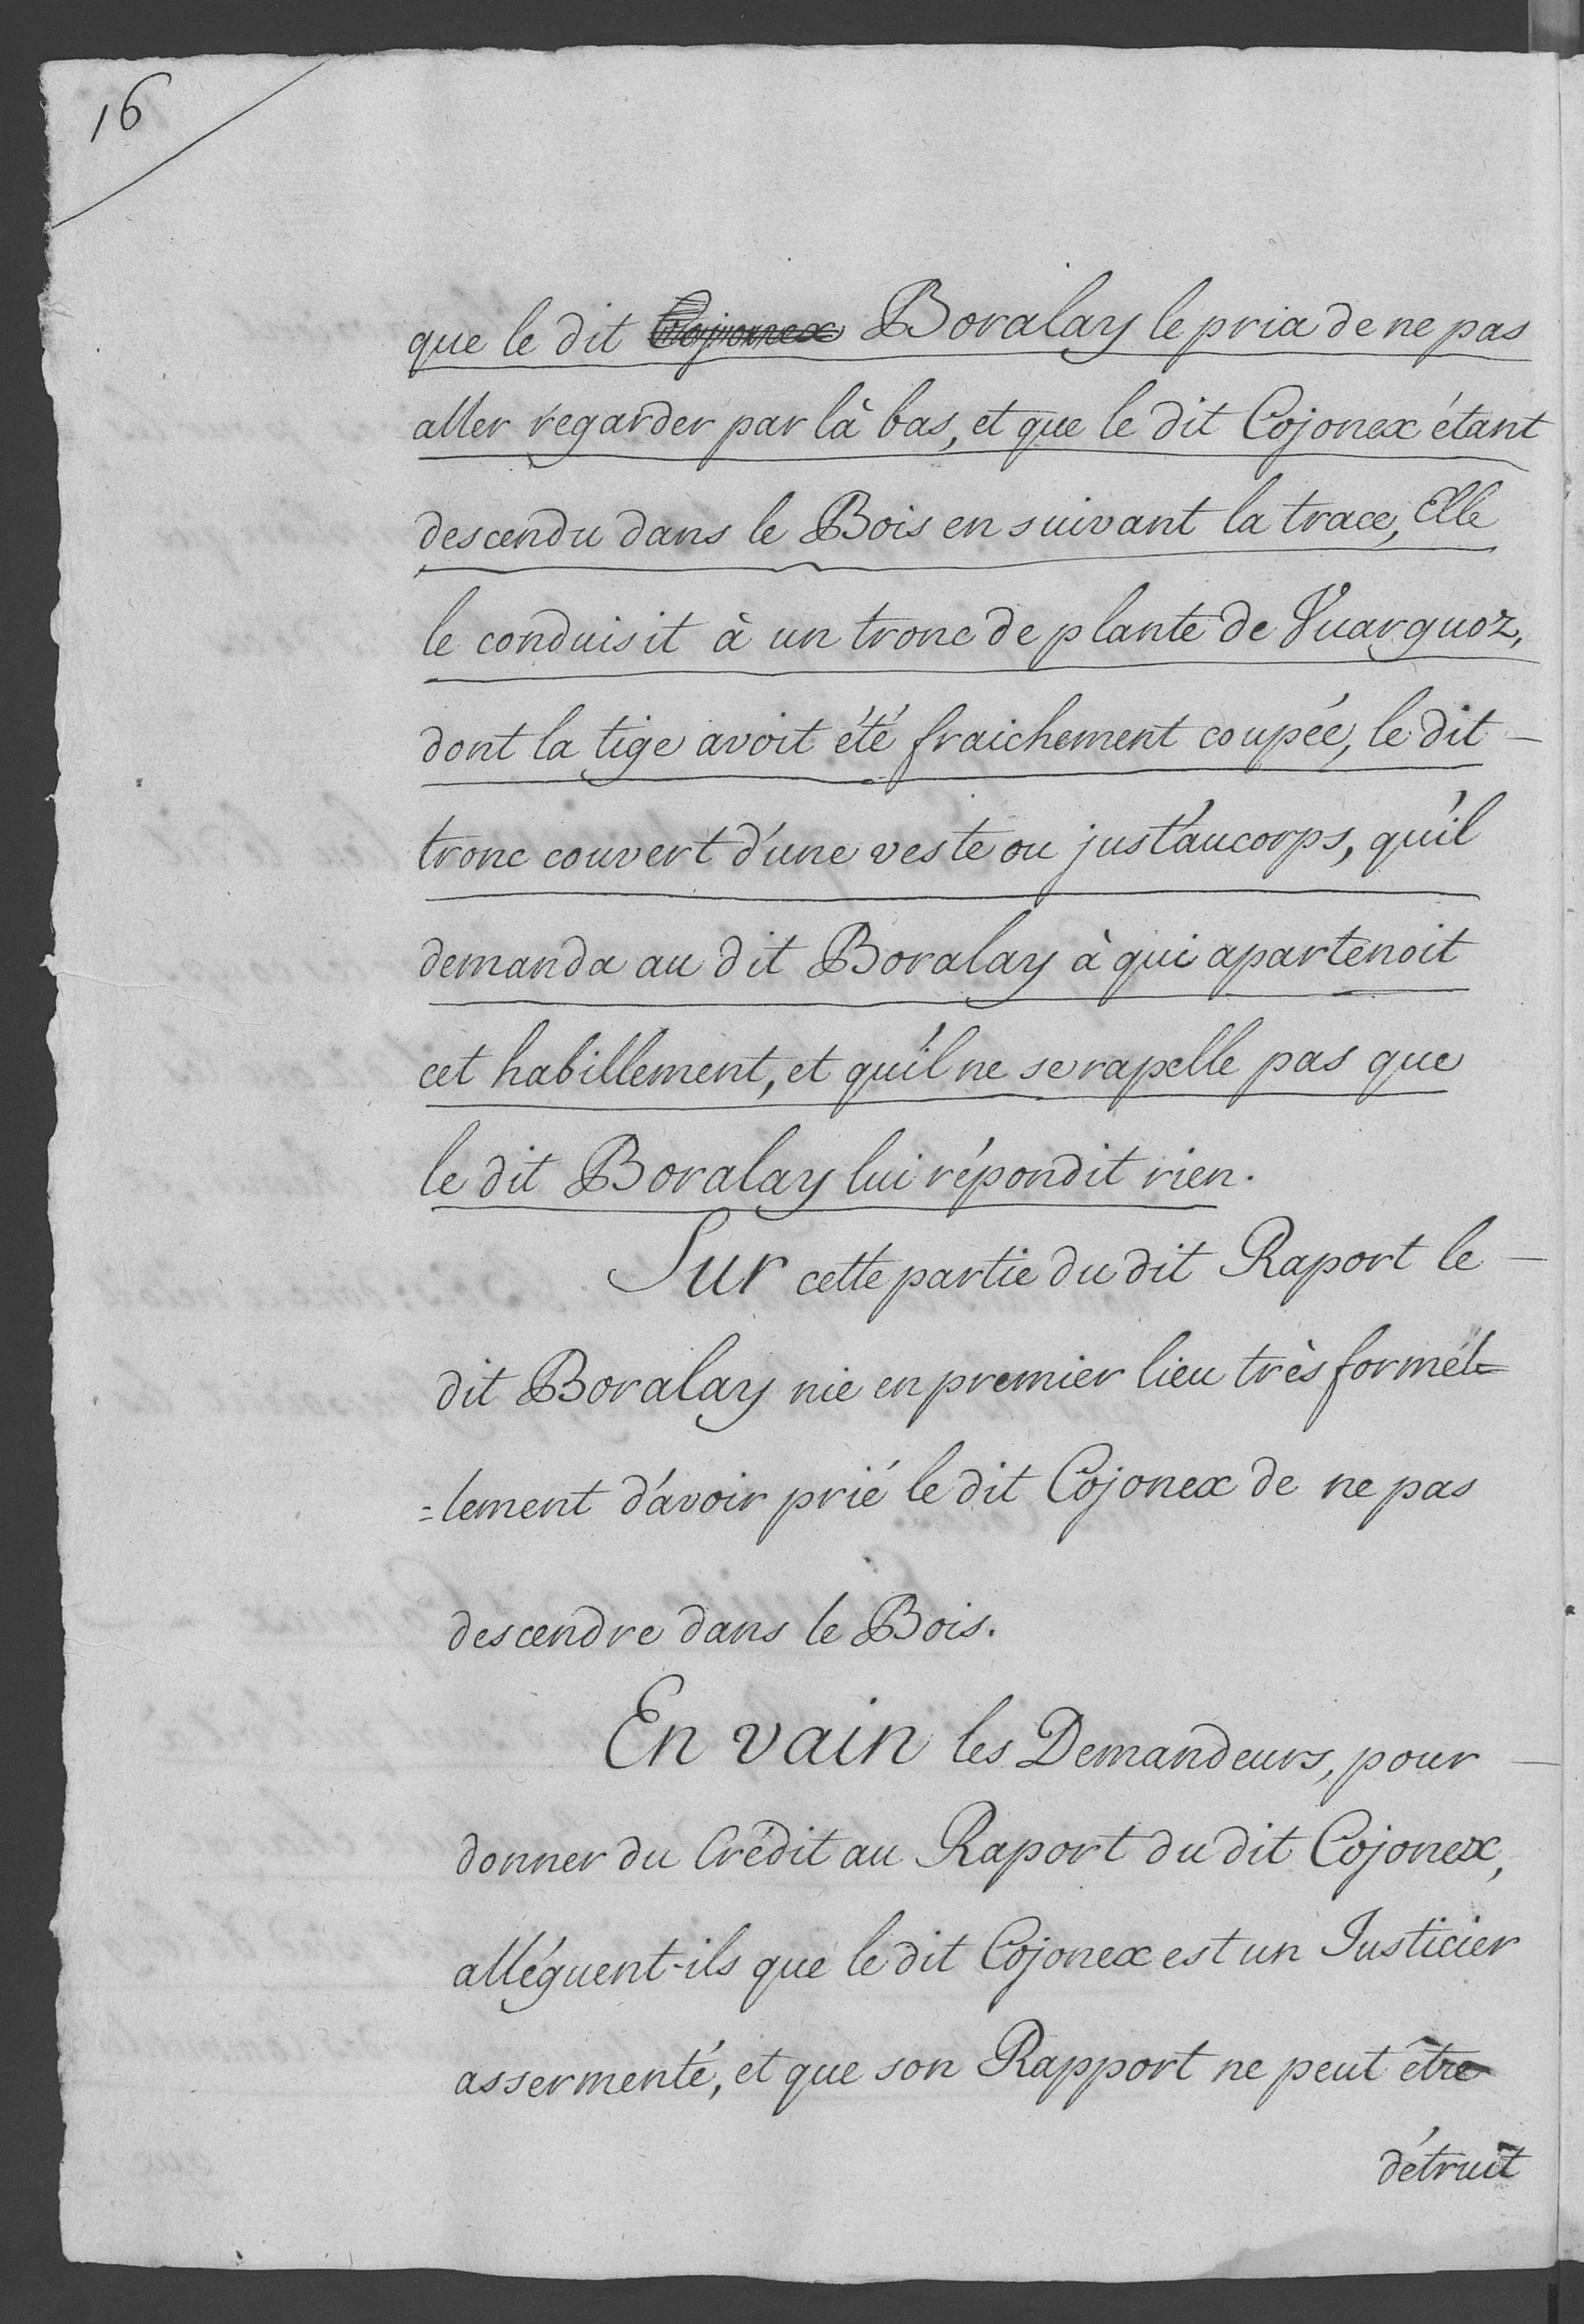 16
que le dit Cojonnex Boralay le pria de ne pas
aller regarder par là bas, et que le dit Cojonex étant
descendu dans le Bois en suivant la trace, Elle
le conduisit à un tronc de plante de Vuarguoz,
dont la tige avoit été fraichement coupée, le dit
tronc couvert d'une veste ou just'aucorps, qu'il
demanda au dit Boralay à qui apartenoit
cet habillement, et qu'il ne se rapelle pas que
le dit Boralay lui répondit rien.
Sur cette partie du dit Raport le
dit Boralay nie en premier lieu très formél=
=lement d'avoir prié le dit Cojonex de ne pas
descendre dans le Bois.
En vain les Demandeurs, pour
donner du Crédit au Raport du dit Cojonex,
alléguent-ils que le dit Cojonex est un Justicier
assermenté, et que son Rapport ne peut être
détruit